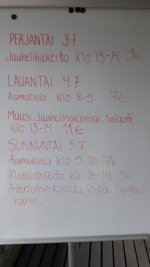 PERJANTAI 3.7
Jauhelihakeitto klo 13-14 9€
LAUANTAI 4.7
Aamupala klo 8-9 7€
Muusi, Jauhelihakastike, Salaatti
klo 13-14 11€
SUNNUNTAI 5.7
Aamupala klo 9-10 7€
Makkarakeitto klo 13-14 9€
Aterioihin kuuluu leipä,
kahvi.